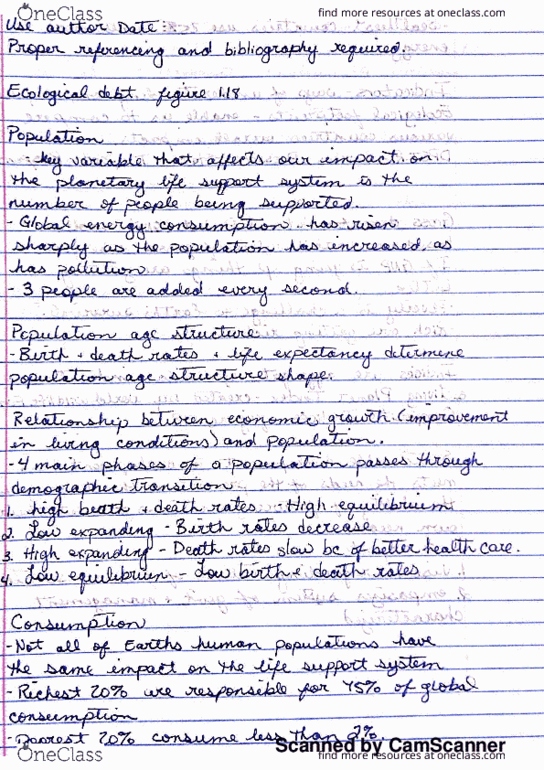 OneClass find more resources at oneclass.com
Use author Date:
Proper referencing and bibliography required.
Ecological debt figure 1.18
Population
- key variable that affects our impact on
the planetary life support system is the
number of people being supported.
- Global energy consumption has risen
sharply as the population has increased, as
has pollution
- 3 people are added every second.
Population age structure
- Birth + death rates + life expectancy determine
population age structure shape.
Relationship between economic growth (improvement
in living conditions) and population.
- 4 main phases of a population passes through
demographic transition
1. high birth + death rates - High equilibrium
2. Low expanding - Birth rates decrease
3. High expanding - Death rates slow bc of better health care.
4. Low equilibrium - Low birth + death rates
Consumption
- Not all of Earths human populations have
the same impact on the life support system
- Richest 20% are responsible for 45% of global
consumption
- Poorest 20% consume less than 2%.
Scanned by CamScanner
OneClass find more resources at oneclass.com